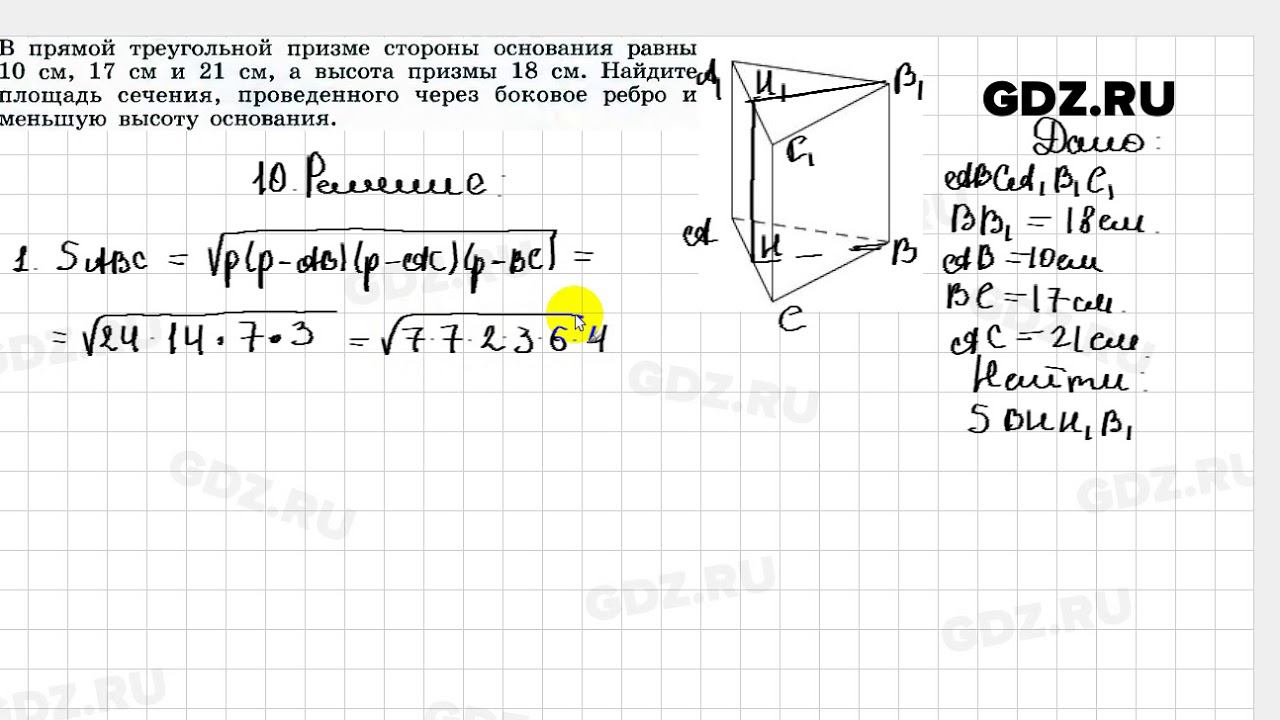 В прямой треугольной призме стороны основания равны
10 см, 17 см и 21 см, а высота призмы 18 см. Найдите
площадь сечения, проведенного через боковое ребро и
меньшую высоту основания.
10. Решение:
1. SABC = √p(p-AB)(p-AC)(p-BC) =
= √24·14·7·3 = √7·7·2·3·6·4
A₁
H₁
B₁
C₁
A
H
B
C
GDZ.RU
Дано:
ABCA₁B₁C₁
BB₁ = 18см.
AB = 10см
BC = 17см.
AC = 21см.
Найти:
SBHH₁B₁
GDZ.RU
GDZ.RU
GDZ.RU
GDZ.RU
GDZ.RU
GDZ.RU
GDZ.RU
GDZ.RU